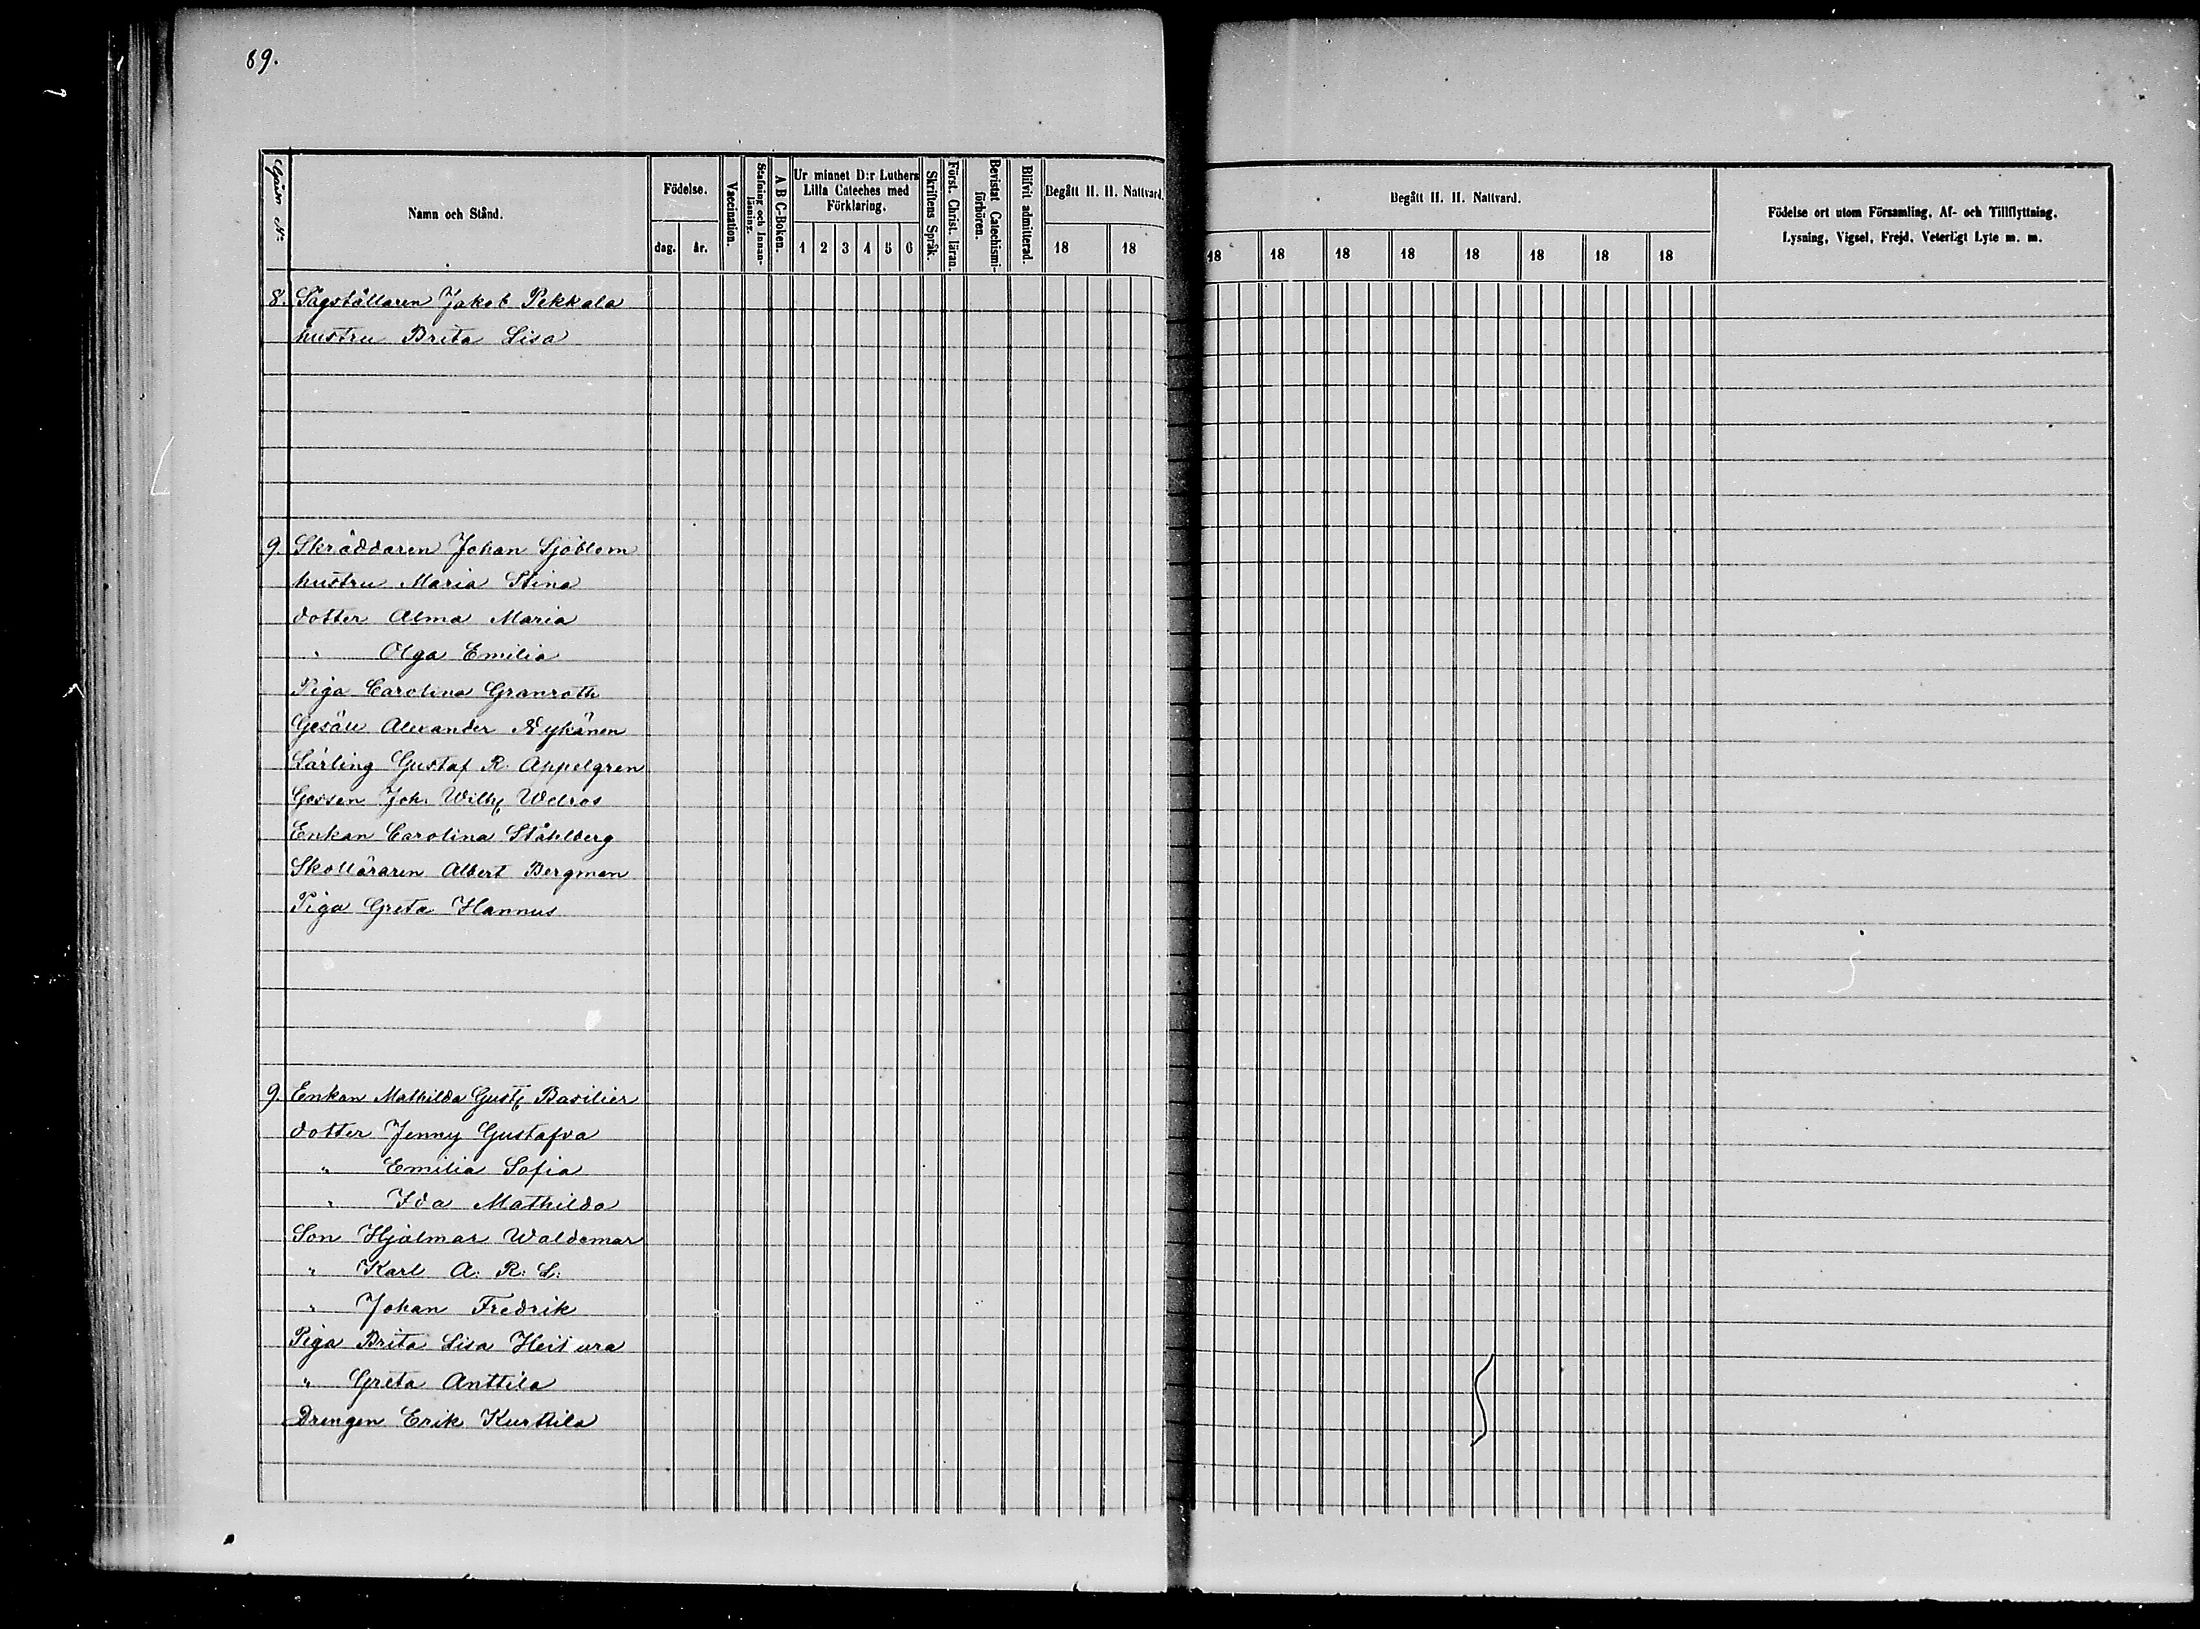 89.
Gårn №
Namn och Stånd.
Födelse.
dag. år.
Vaccination.
Stafning och Innanläsning.
A B C-Boken.
Ur minnet D:r Luthers
Lilla Cateches med
Förklaring.
1 2 3 4 5 6
Skriftens Språk.
Först. Christ. läran.
Bevistat Catechismi-
förhören.
Blifvit admitterad.
Begått H. H. Nattvard.
18 18
Begått H. H. Nattvard.
18 18 18 18 18 18 18 18
Födelse ort utom Församling, Af- och Tillflyttning,
Lysning, Vigsel, Frejd, Veterligt Lyte m. m.
8. Sågställaren Jakob Pekkala
hustru Brita Lisa
9. Skräddaren Johan Sjöblom
hustru Maria Stina
dotter Alma Maria
" Olga Emilia
Piga Carolina Granroth
Gesäll Alexander Nykänen
Lärling Gustaf R. Appelgren
Gossen Joh. Wilh. Welros
Enkan Carolina Ståhlberg
Skolläraren Albert Bergman
Piga Greta Hannus
9. Enkan Mathilda Gust. Basilier
dotter Jenny Gustafva
" Emilia Sofia
" Ida Mathilda
Son Hjalmar Waldemar
" Karl A. R. L.
" Johan Fredrik
Piga Brita Lisa Heitura
" Greta Anttila
Drengen Erik Kurttila